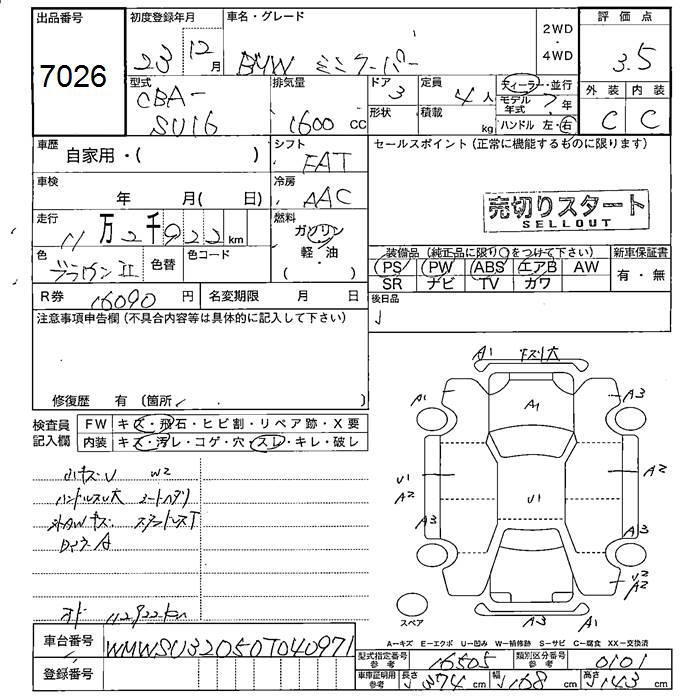 出品番号
7026
初度登録年月
23 12月
車名・グレード
BMW ミニクーパー
2WD
・
4WD
評価点
3.5
外装 内装
C C
型式
CBA-
SU16
排気量
1600 cc
ドア
3
形状
定員
4人
積載
kg
ディーラー・並行
モデル年式 ? 年
ハンドル 左・右
車歴
自家用・( )
シフト
FAT
車検
年 月( 日)
冷房
AAC
走行
11万2千922km
燃料
ガソリン
軽・油
( ・ )
色
ブラウンII
色替
色コード
R券 16090円
名変期限 月 日
セールスポイント(正常に機能するものに限ります)
売切りスタート
SELLOUT
装備品(純正品に限り○をつけて下さい)
PS PW ABS エアB AW
SR ナビ TV カワ
新車保証書
有・無
後日品
注意事項申告欄(不具合内容等は具体的に記入して下さい)
修復歴 有 (箇所 )
検査員
記入欄
FW キズ・飛石・ヒビ割・リペア跡・X要
内装 キズ・汚レ・コゲ・穴・スレ・キレ・破レ
小キズ・U W2
ハンドルスレ大 シートヘタリ
外AWキズ・
112922km
A1
A1
A3
A1
U1
A2
A2
U1
A3
A3
U2
A2
A3
A1
スペア
A-キズ E-エクボ U-凹み W-補修跡 S-サビ C-腐食 XX-交換済
車台番号 WMWSU32050T040971
登録番号
型式指定番号
参考
16505
類別区分番号
参考
0101
車庫証明用
参考
長さ 374cm
幅 168cm
高さ 143cm